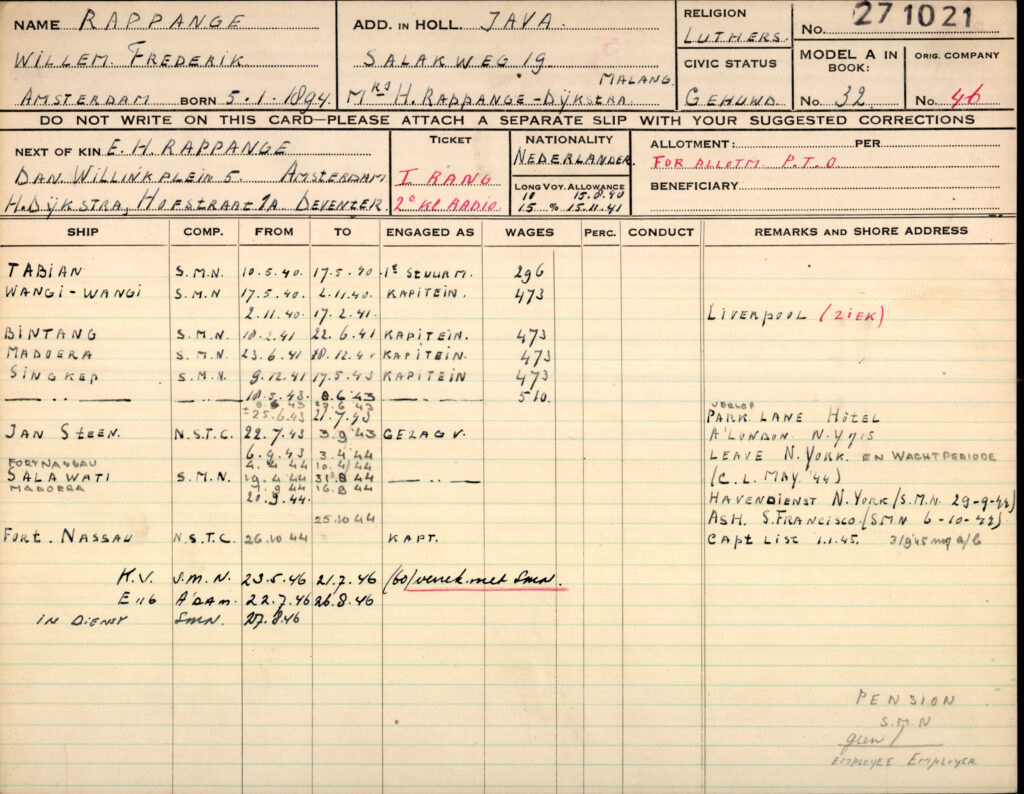 NAME RAPPANGE
WILLEM FREDERIK
AMSTERDAM BORN 5.1.1894.
ADD. IN HOLL. JAVA.
SALAKWEG 19
MALANG.
MRS H. RAPPANGE-DŸKSTRA
RELIGION
LUTHERS.
CIVIC STATUS
GEHUWD
No. 271021
MODEL A IN BOOK:
No. 32
ORIG. COMPANY
No. 46
DO NOT WRITE ON THIS CARD—PLEASE ATTACH A SEPARATE SLIP WITH YOUR SUGGESTED CORRECTIONS
NEXT OF KIN E.H. RAPPANGE
DAN. WILLINKPLEIN 5. AMSTERDAM
H. DŸKSTRA, HOFSTRAAT 7A DEVENTER
TICKET
I RANG
2e KL RADIO.
NATIONALITY
NEDERLANDER.
LONG VOY. ALLOWANCE
10 15.8.40
15 % 15.11.41
ALLOTMENT: PER
FOR ALLOTM P.T.O
BENEFICIARY
SHIP COMP. FROM TO ENGAGED AS WAGES PERC. CONDUCT REMARKS AND SHORE ADDRESS
TABIAN S.M.N. 10.5.40. 17.5.40. 1e STUURM. 296
WANGI-WANGI S.M.N 17.5.40. 2.11.40. KAPITEIN. 473
2.11.40. 17.2.41. LIVERPOOL (ZIEK)
BINTANG S.M.N. 18.2.41. 22.6.41 KAPITEIN. 473
MADOERA S.M.N. 23.6.41 18.12.41 KAPITEIN. 473
SINGKEP S.M.N. 9.12.41 17.5.43 KAPITEIN 473
— " — — " — 18.5.43. 8.6.43 — " — 510.
27.6.43
± 25.6.43 21.7.43 VERLOF
PARK LANE HOTEL
JAN STEEN. N.S.T.C. 22.7.43 3.9.43 GEZAGV. A'LONDON N.Y
6.9.43 3.4.44 LEAVE N.YORK. EN WACHTPERIODE
FORT NASSAU 4.4.44 10.4/44
SALAWATI S.M.N. 19.4.44 31.8.44 — " — (C.L. MAY '44)
MADOERA 1.9.44 16.9.44
20.9.44. HAVENDIENST N.YORK/S.M.N. 29-9-44)
25.10.44 ASH. S.FRANCISCO.(SMN 6-10-44)
FORT. NASSAU N.S.T.C. 26.10.44 KAPT. CAPT LIST 1.1.45.
K.V. S.M.N. 23.5.46 21.7.46 (60) verrek. met Smn.
A'DAM. 22.7.46 26.8.46
IN DIENST SMN. 27.8.46
PENSION
S.M.N
EMPLOYEE EMPLOYER